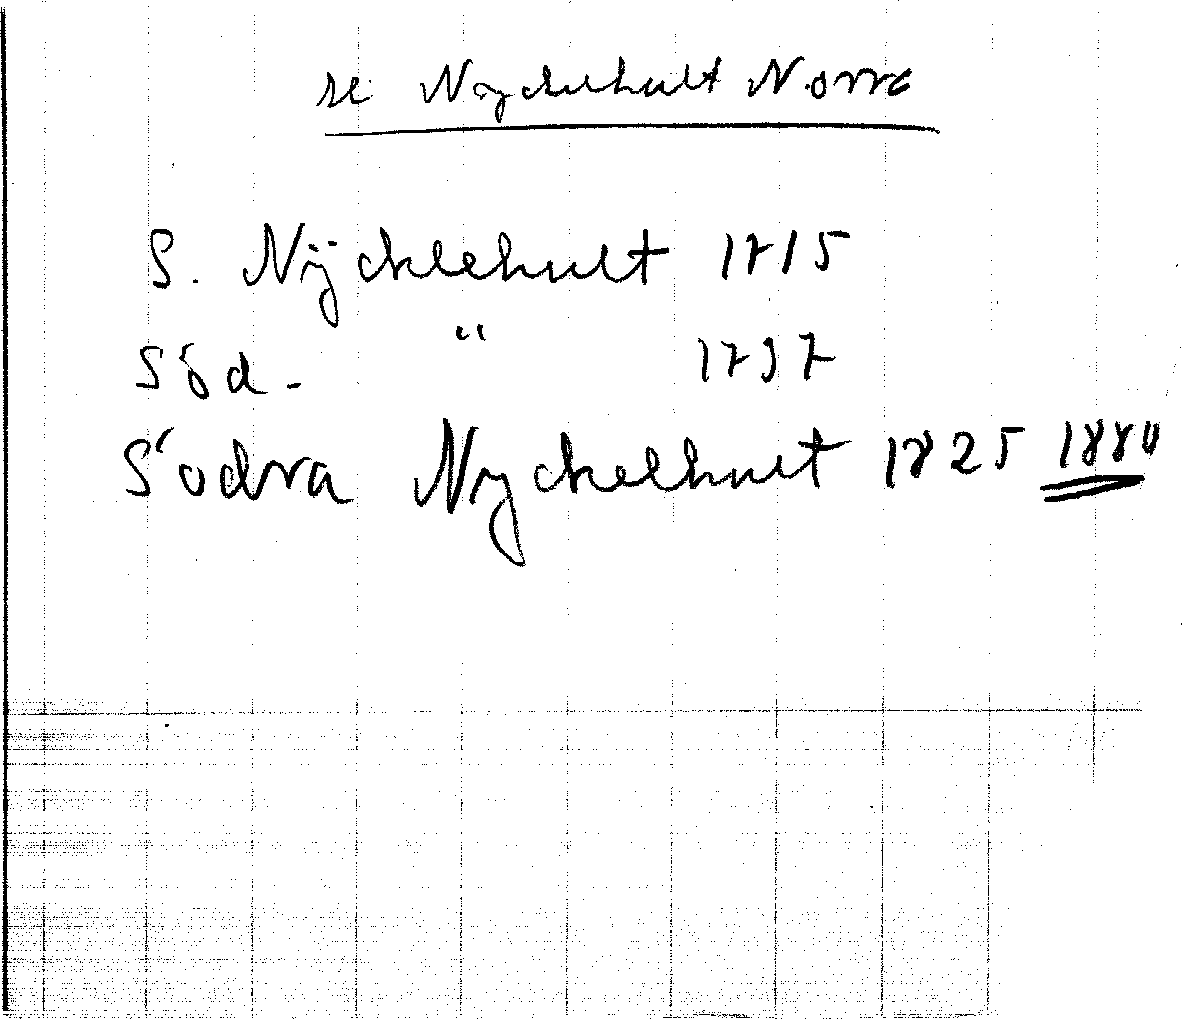 se Nyckelhult Norra
S. Nÿcklehult 1715
Söd- " 1737
Södra Nyckelhult 1825 1880